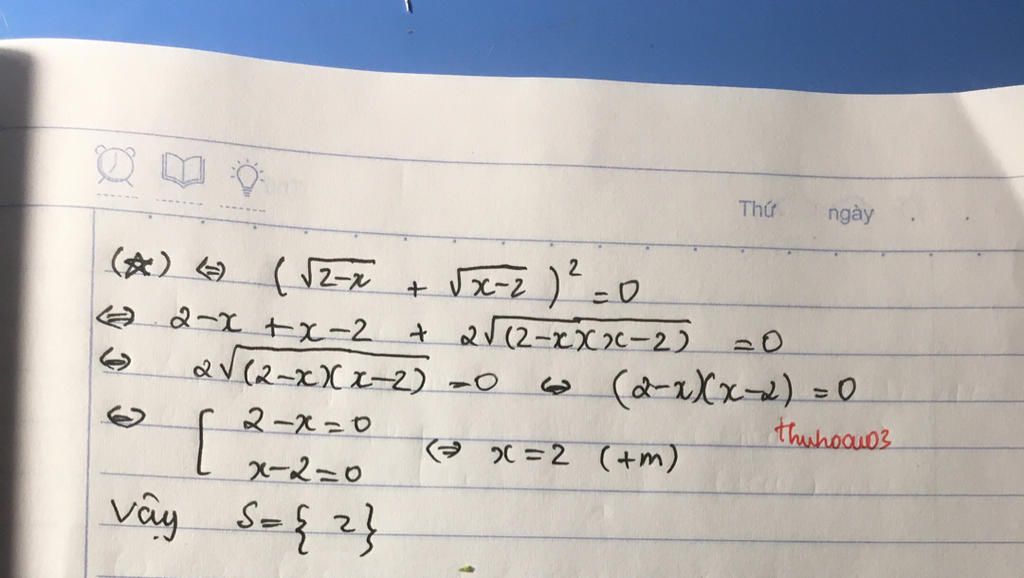 Thứ ngày . .
(☆) ⇔ (√(2-x) + √(x-2))² = 0
⇔ 2-x + x-2 + 2√((2-x)(x-2)) = 0
⇔ 2√((2-x)(x-2)) = 0 ⇔ (2-x)(x-2) = 0
⇔ [ 2-x=0
x-2=0 ⇔ x=2 (+m)
thuhoau03
Vậy S={2}